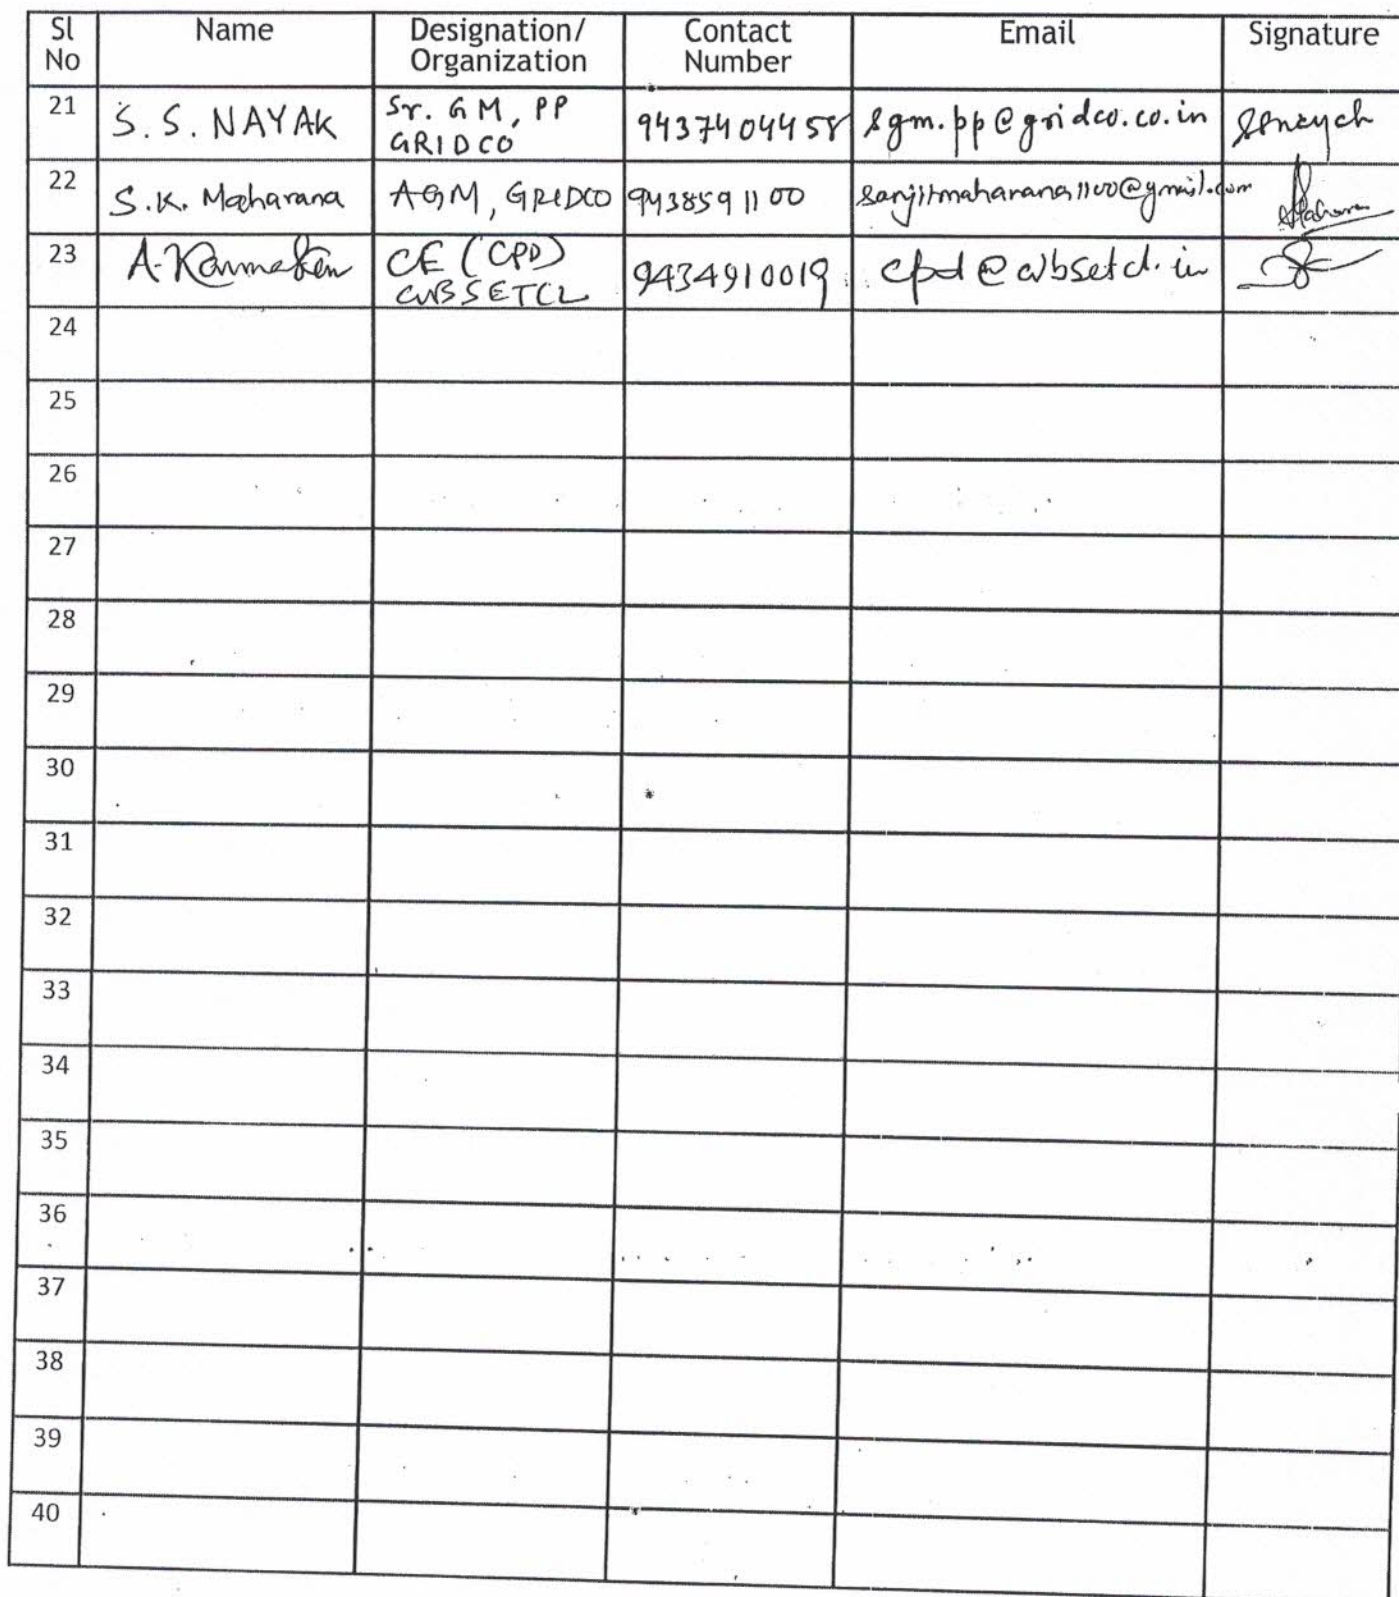 Sl No Name Designation/ Organization Contact Number Email Signature
21 S. S. NAYAK Sr. GM, PP GRIDCO 9437404458 sgm.pp@gridco.co.in
22 S.K. Maharana AGM, GRIDCO 9438591100 sanjitmaharana1100@gmail.com
23 A. Karmakar CE (CPD) WBSETCL 9434910019 cpd@wbsetcl.in
24
25
26
27
28
29
30
31
32
33
34
35
36
37
38
39
40